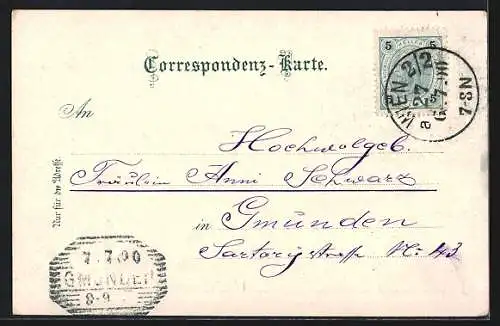 Correspondenz-Karte.
5 HELLER 5
WIEN 2/2
a 27
6.7.00
7-8N
An
Hochwolgeb.
Fräulein Anni Schwarz
in Gmunden
Satoristrasse Nr. 43
Nur für die Adresse
7.7.00
GMUNDEN
8-9